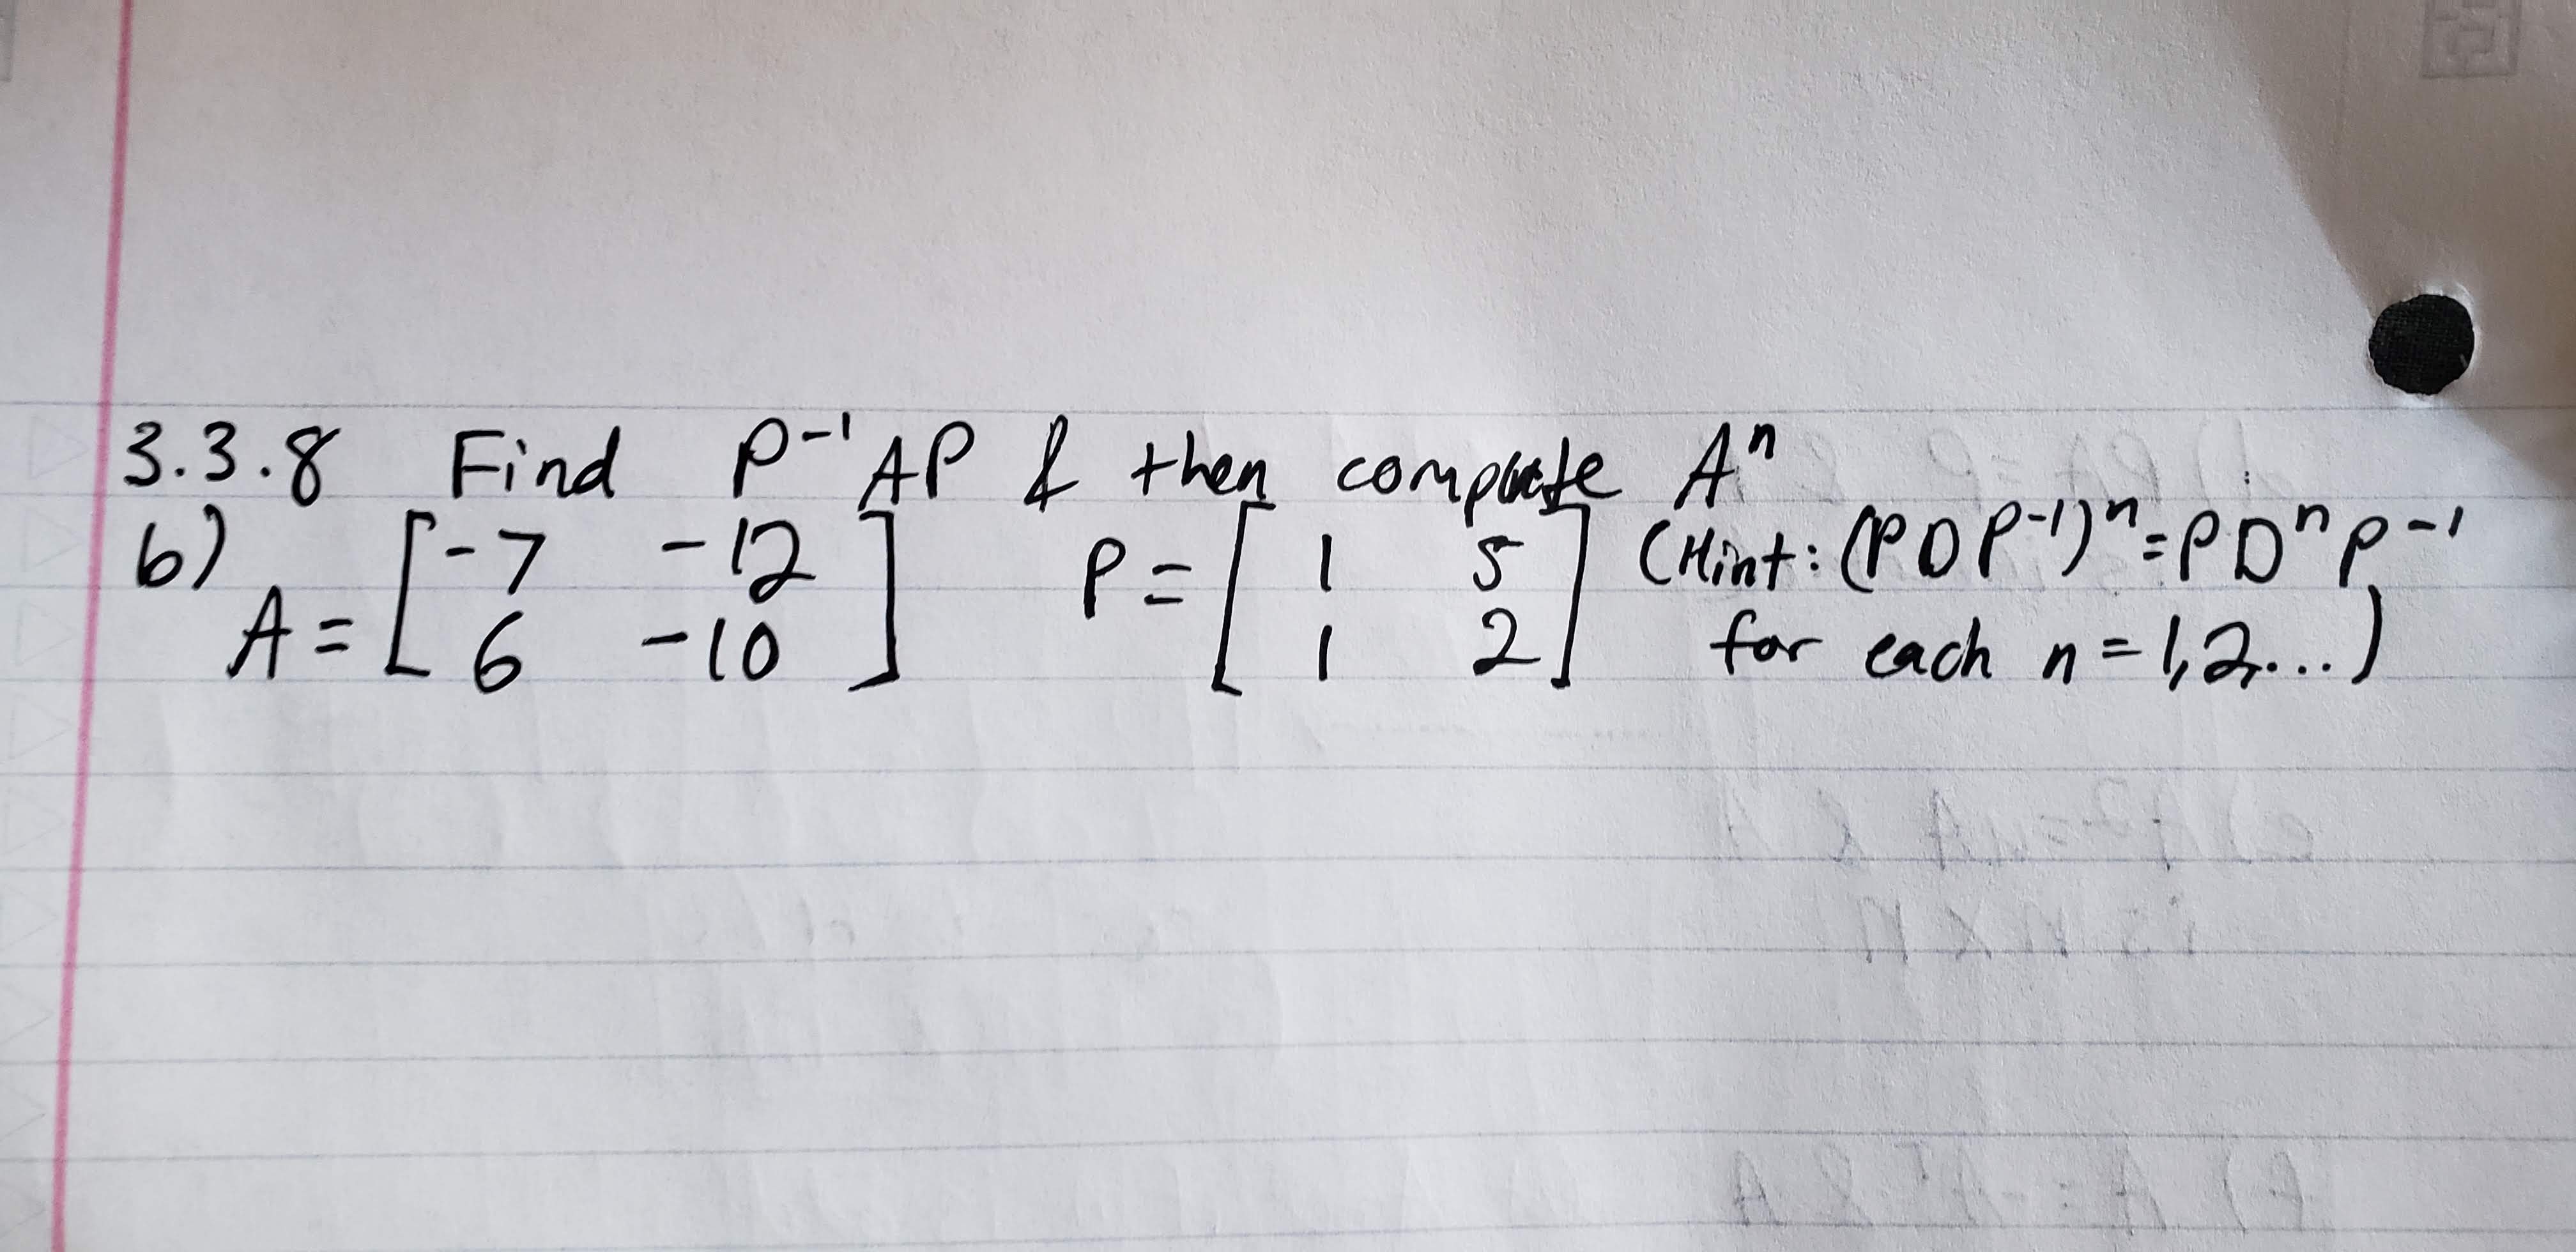 3.3.8 Find P⁻¹AP & then compute Aⁿ
b) A = [ -7 -12 ] P = [ 1 5 ] (Hint: (PDP⁻¹)ⁿ = PDⁿP⁻¹
[ 6 -10 ] [ 1 2 ] for each n = 1,2,...)